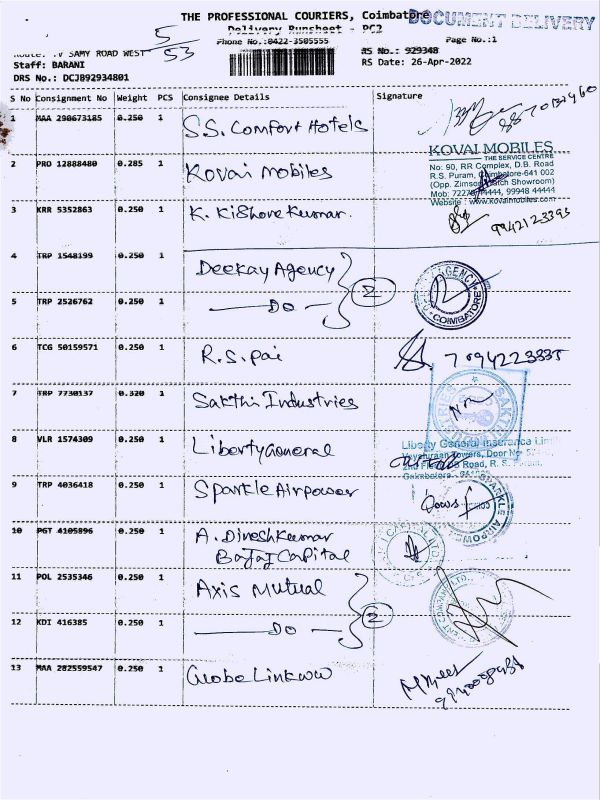 THE PROFESSIONAL COURIERS, Coimbatore
DOCUMENT DELIVERY
Delivery Runsheet - PC2
5
53
Phone No.:0422-3505555
Page No.:1
SAMY ROAD WEST
RS No.: 929348
Staff: BARANI
RS Date: 26-Apr-2022
DRS No.: DCJB92934801
S No Consignment No Weight PCS Consignee Details Signature
1 MAA 290673185 0.250 1 S.S. Comfort Hotels
2 PRO 12888480 0.285 1 Kovai Mobiles
KOVAI MOBILES
THE SERVICE CENTRE
No: 90, RR Complex, D.B. Road
R.S. Puram, Coimbatore-641 002
(Opp. Zimson Watch Showroom)
99948 44444
Website : www.kovaimobiles.com
3 KRR 5352863 0.250 1 K. Kishore Kumar.
9942123395
4 TRP 1548199 0.250 1 Deekay Agency
2
AGENCY
COIMBATORE
5 TRP 2526762 0.250 1 — Do —
6 TCG 50159571 0.250 1 R.S. Pai
7094223335
7 TRP 7730137 0.320 1 Sakthi Industries
SAKTHI
8 VLR 1574309 0.250 1 Liberty General
Liberty General Insurance
Towers, Door No
Road, R. S. Puram,
9 TRP 4036418 0.250 1 Sparkle Airpower
SPARKLE AIRPOWER
10 PGT 4105896 0.250 1 A. Dineshkumar
Bajaj Capital
CAPITAL LTD
11 POL 2535346 0.250 1 Axis Mutual
2
12 KDI 416385 0.250 1 — Do —
13 MAA 282559547 0.250 1 Globe Link ww